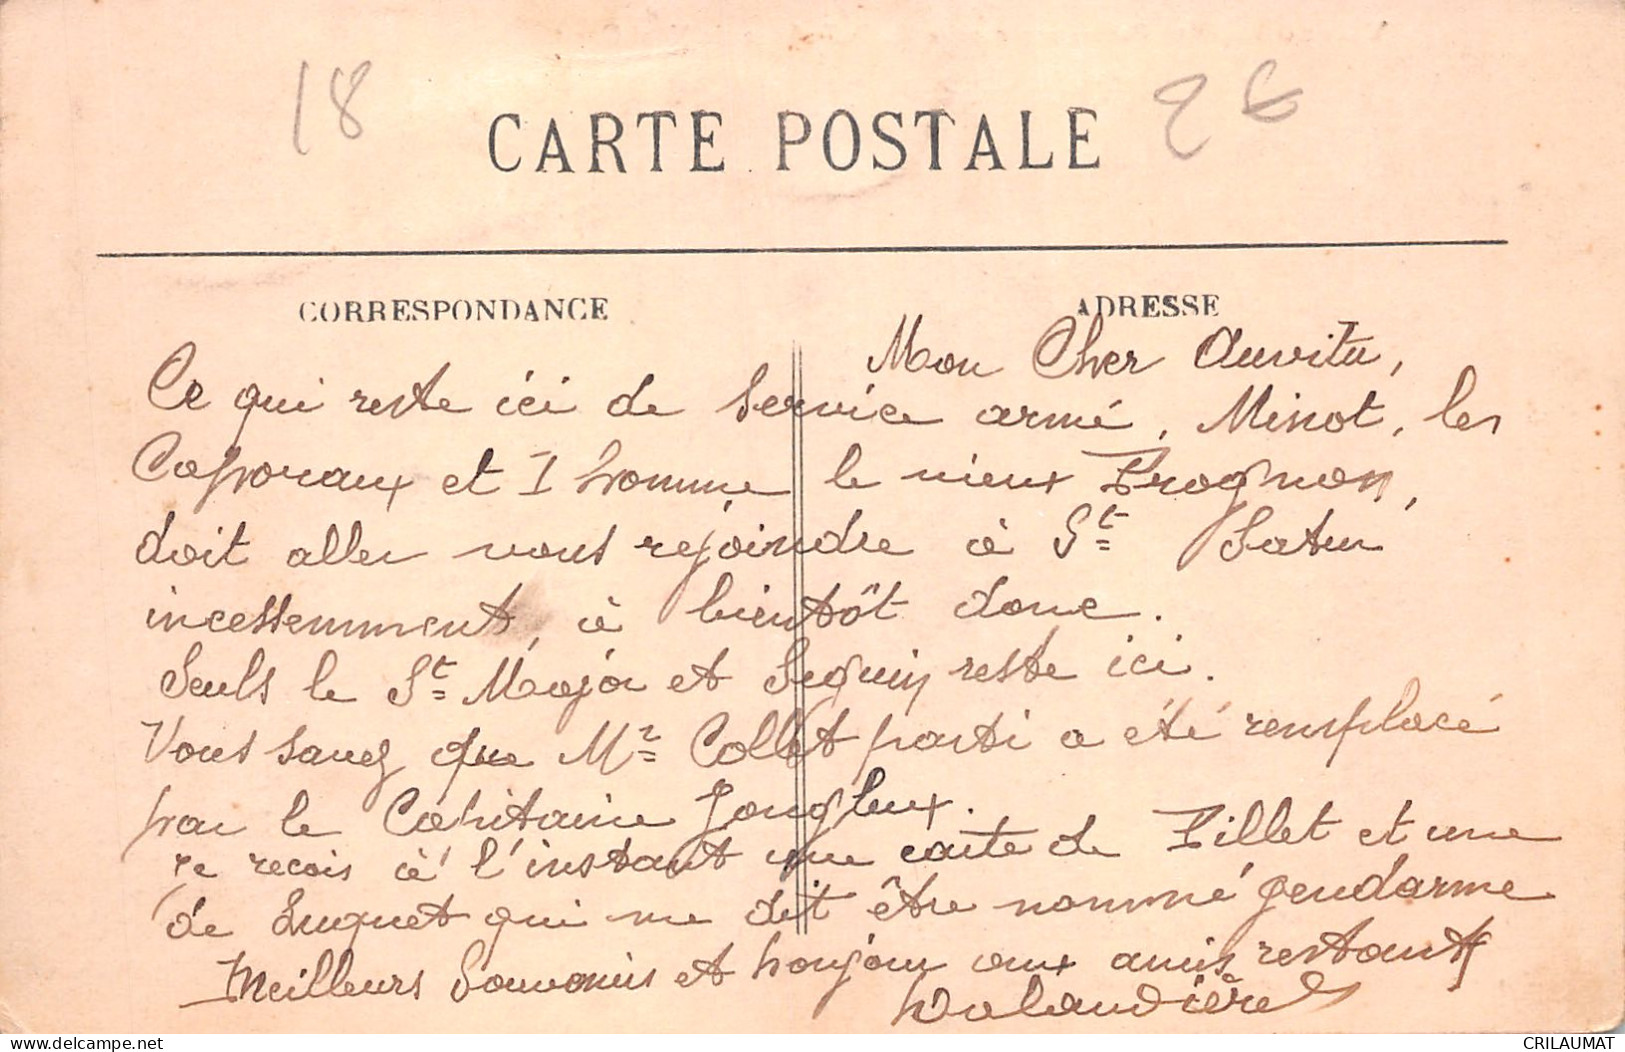 18
CARTE POSTALE
26
CORRESPONDANCE
ADRESSE
Mon Cher Auvitu,
Ce qui reste ici de Service armé, Minot, les
Caporaux et 1 homme le vieux Frognon,
doit aller vous rejoindre à St Satur
incessemment, à bientôt donc.
Seuls le St Major et Seguin reste ici.
Vous savez que Mr Collet parti a été remplacé
par le Capitaine Jougleux.
Je reçois à l'instant une carte de Fillet et une
de Luquet qui me dit être nommé gendarme
Meilleurs Souvenirs et bonjour aux amis restants
CRILAUMAT